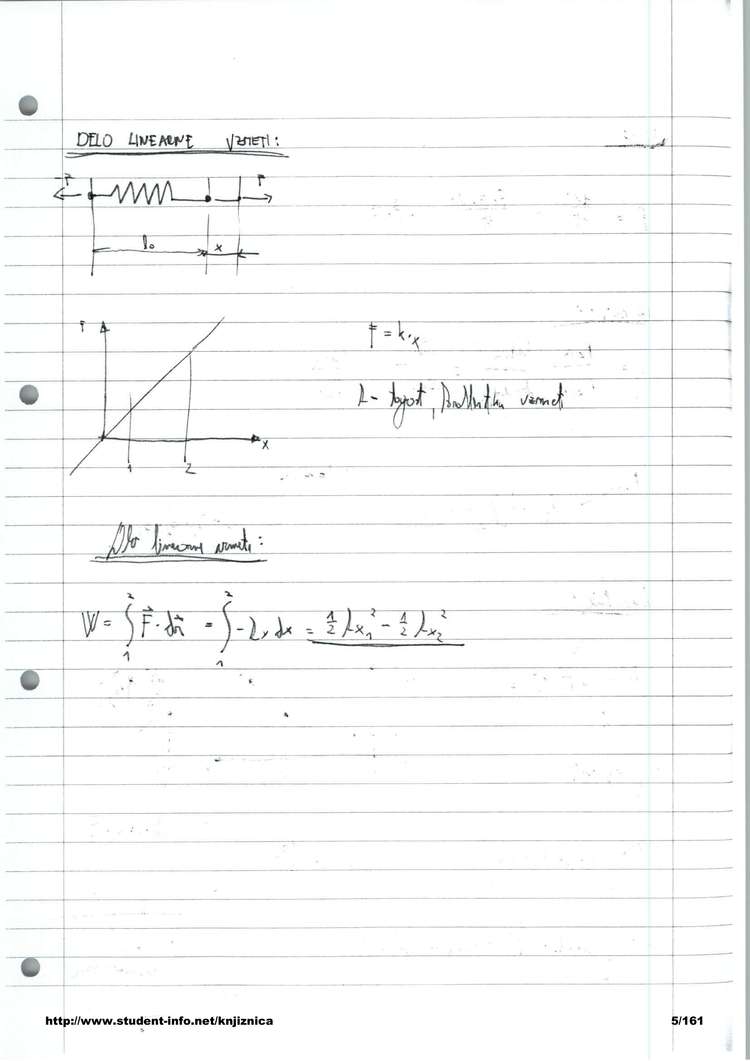 DELO LINEARNE VZMETI:
-F F
l₀ x
F
F = k·x
k - togost, vzmeti
x
1 2
Delo linearne vzmeti:
W = ∫₁² F⃗ · dr⃗ = ∫₁² -kx dx = ½ kx₁² - ½ kx₂²
http://www.student-info.net/knjiznica 5/161